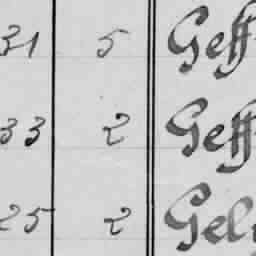 31 5 Geff
33 2 Geff
25 2 Gel